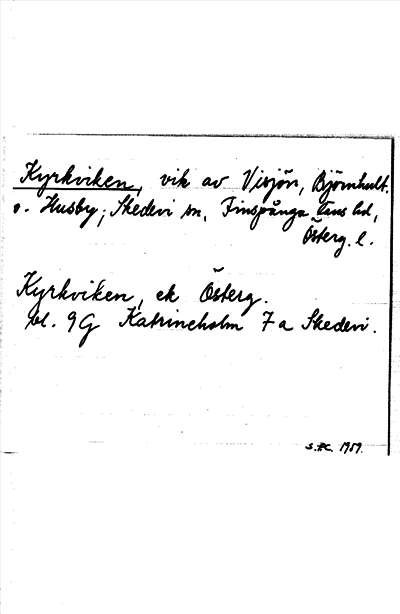 Kyrkviken, vik av Visjön, Björnhult.
o. Husby, Skedevi sn, Finspånga läns hd,
Österg. l.
Kyrkviken, ek Österg.
bl. 9G Katrineholm 7a Skedevi.
1959.